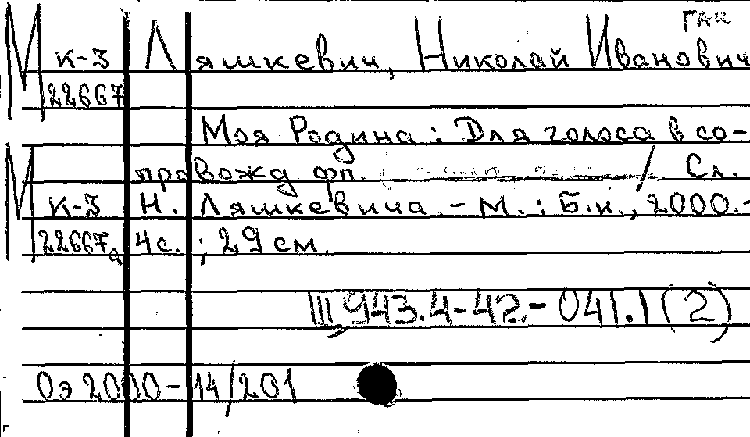 ГАК
М к-3 Ляшкевич, Николай Иванович
22667
Моя Родина : Для голоса в со-
М провожд фп. / Сл.
к-3 Н. Ляшкевича. - М. : Б.и., 2000.-
22667а 4с. ; 29 см.
Ш943.4-42.-041.1(2)
Оэ 2000-14/201